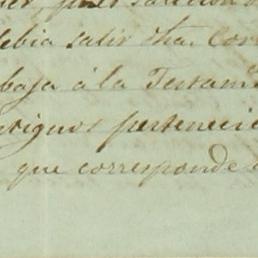 debia salir dha. Cor
baja á la Testam
antiguos pertenecie
que corresponde